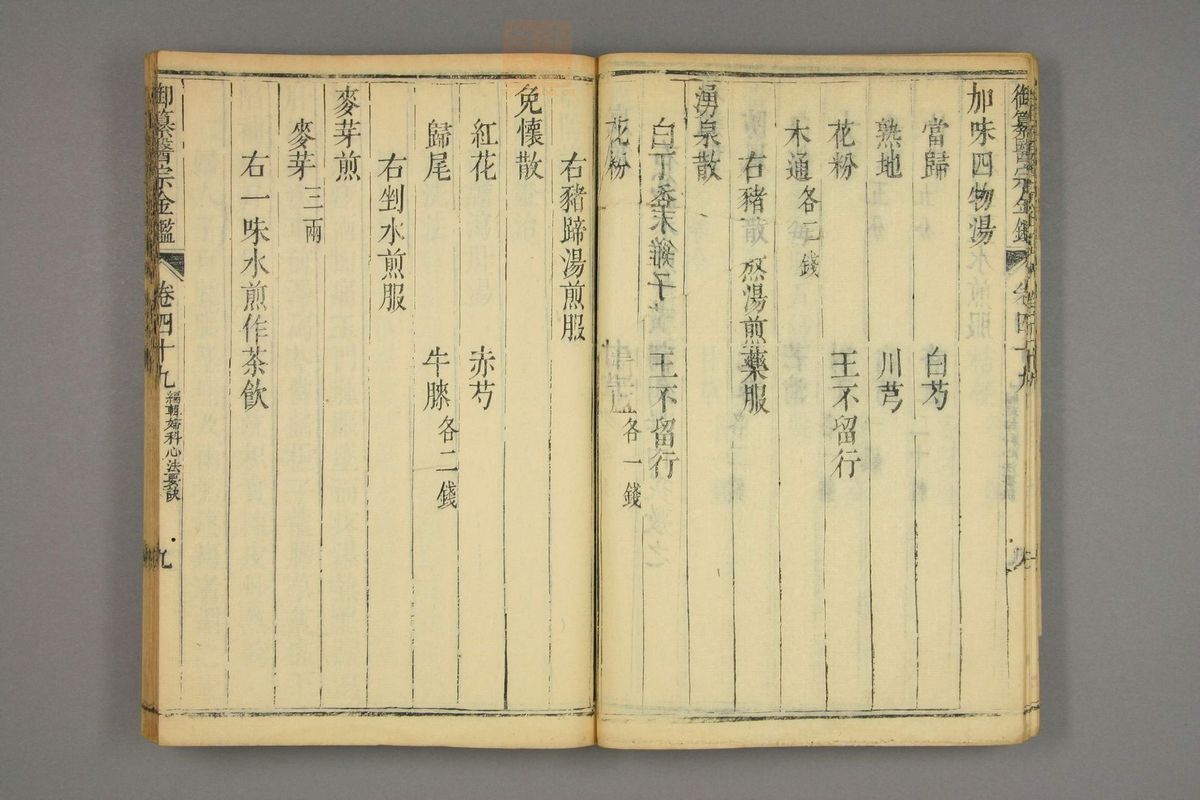 御纂醫宗金鑑 卷四十九
加味四物湯
當歸 白芍
熟地 川芎
花粉 王不留行
木通各二錢
右豬蹄湯煎藥服
湧泉散
白丁香 王不留行
花粉 各一錢
右豬蹄湯煎服
免懷散
紅花 赤芍
歸尾 牛膝各二錢
右剉水煎服
麥芽煎
麥芽三兩
右一味水煎作茶飲
御纂醫宗金鑑 卷四十九 編輯婦科心法要訣 九